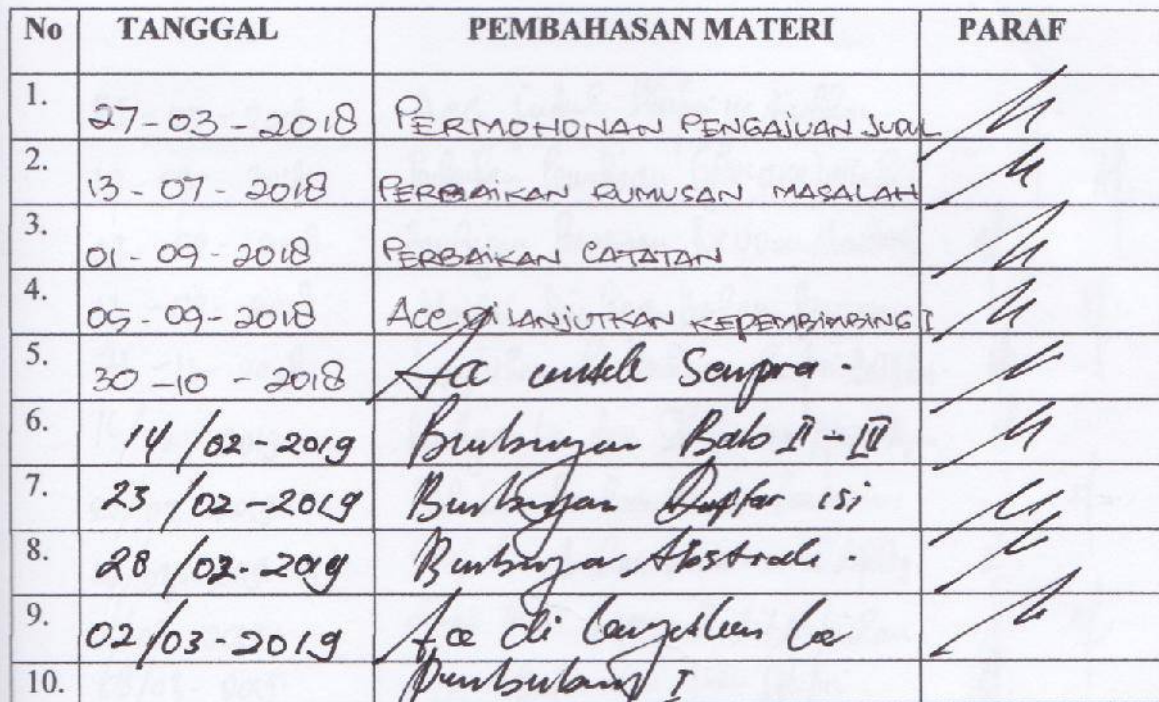 No TANGGAL PEMBAHASAN MATERI PARAF
1. 27-03-2018 PERMOHONAN PENGAJUAN JUDUL
2. 13-07-2018 PERBAIKAN RUMUSAN MASALAH
3. 01-09-2018 PERBAIKAN CATATAN
4. 05-09-2018 ACC DILANJUTKAN KEPEMBIMBING I
5. 30-10-2018 Acc untuk Sempro.
6. 14/02-2019 Bimbingan Bab II - IV
7. 23/02-2019 Bimbingan Daftar isi
8. 28/02-2019 Bimbingan Abstrak.
9. 02/03-2019 Acc di lanjutkan ke
10. Pembimbing I